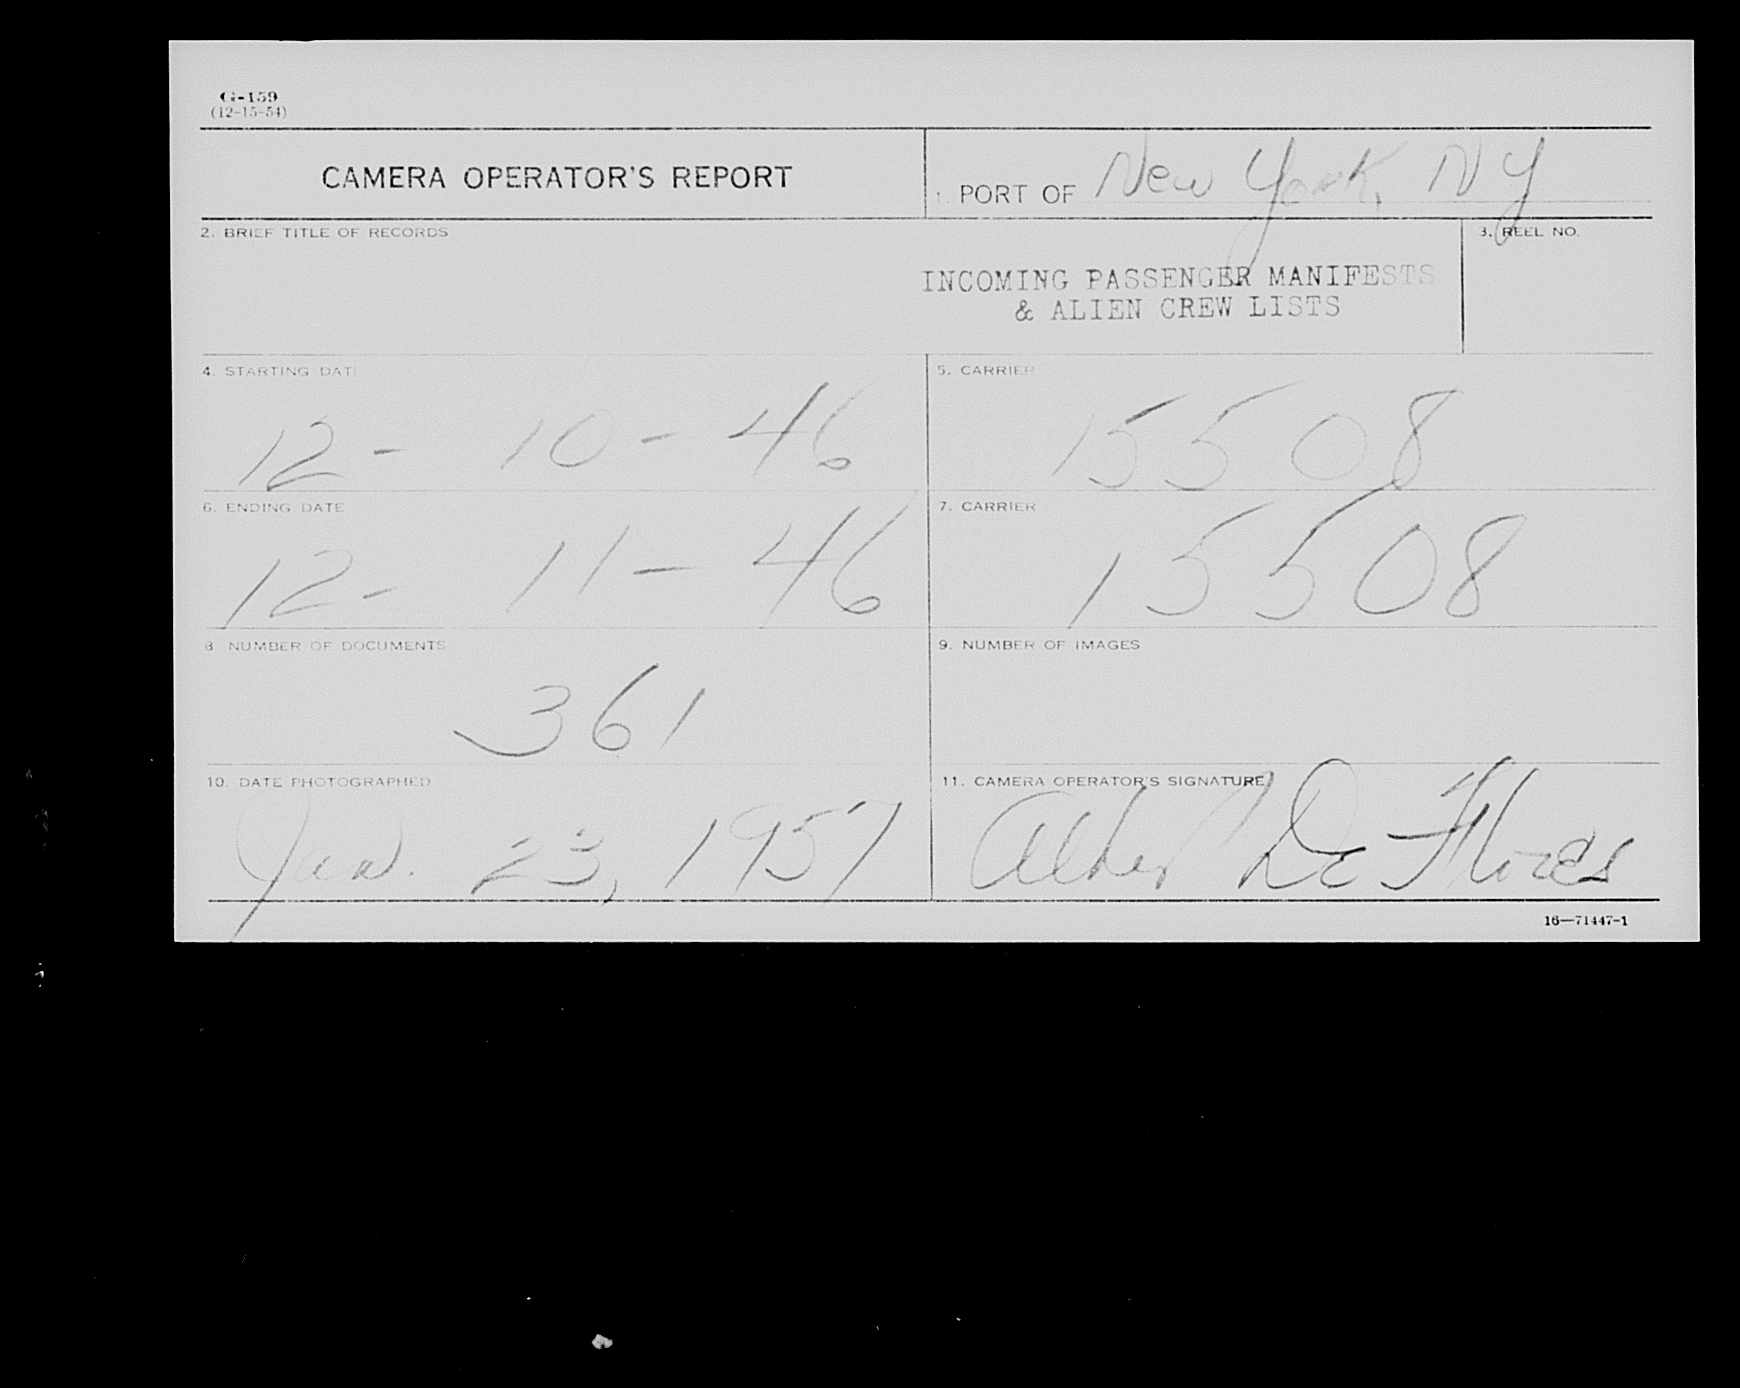 G-159
(12-15-54)
CAMERA OPERATOR'S REPORT
1. PORT OF New York, NY
2. BRIEF TITLE OF RECORDS
3. REEL NO.
INCOMING PASSENGER MANIFESTS
& ALIEN CREW LISTS
4. STARTING DATE
12- 10-46
5. CARRIER
15508
6. ENDING DATE
12- 11-46
7. CARRIER
15508
8. NUMBER OF DOCUMENTS
361
9. NUMBER OF IMAGES
10. DATE PHOTOGRAPHED
Jan. 23, 1957
11. CAMERA OPERATOR'S SIGNATURE
Albert De Flores
16—71447-1